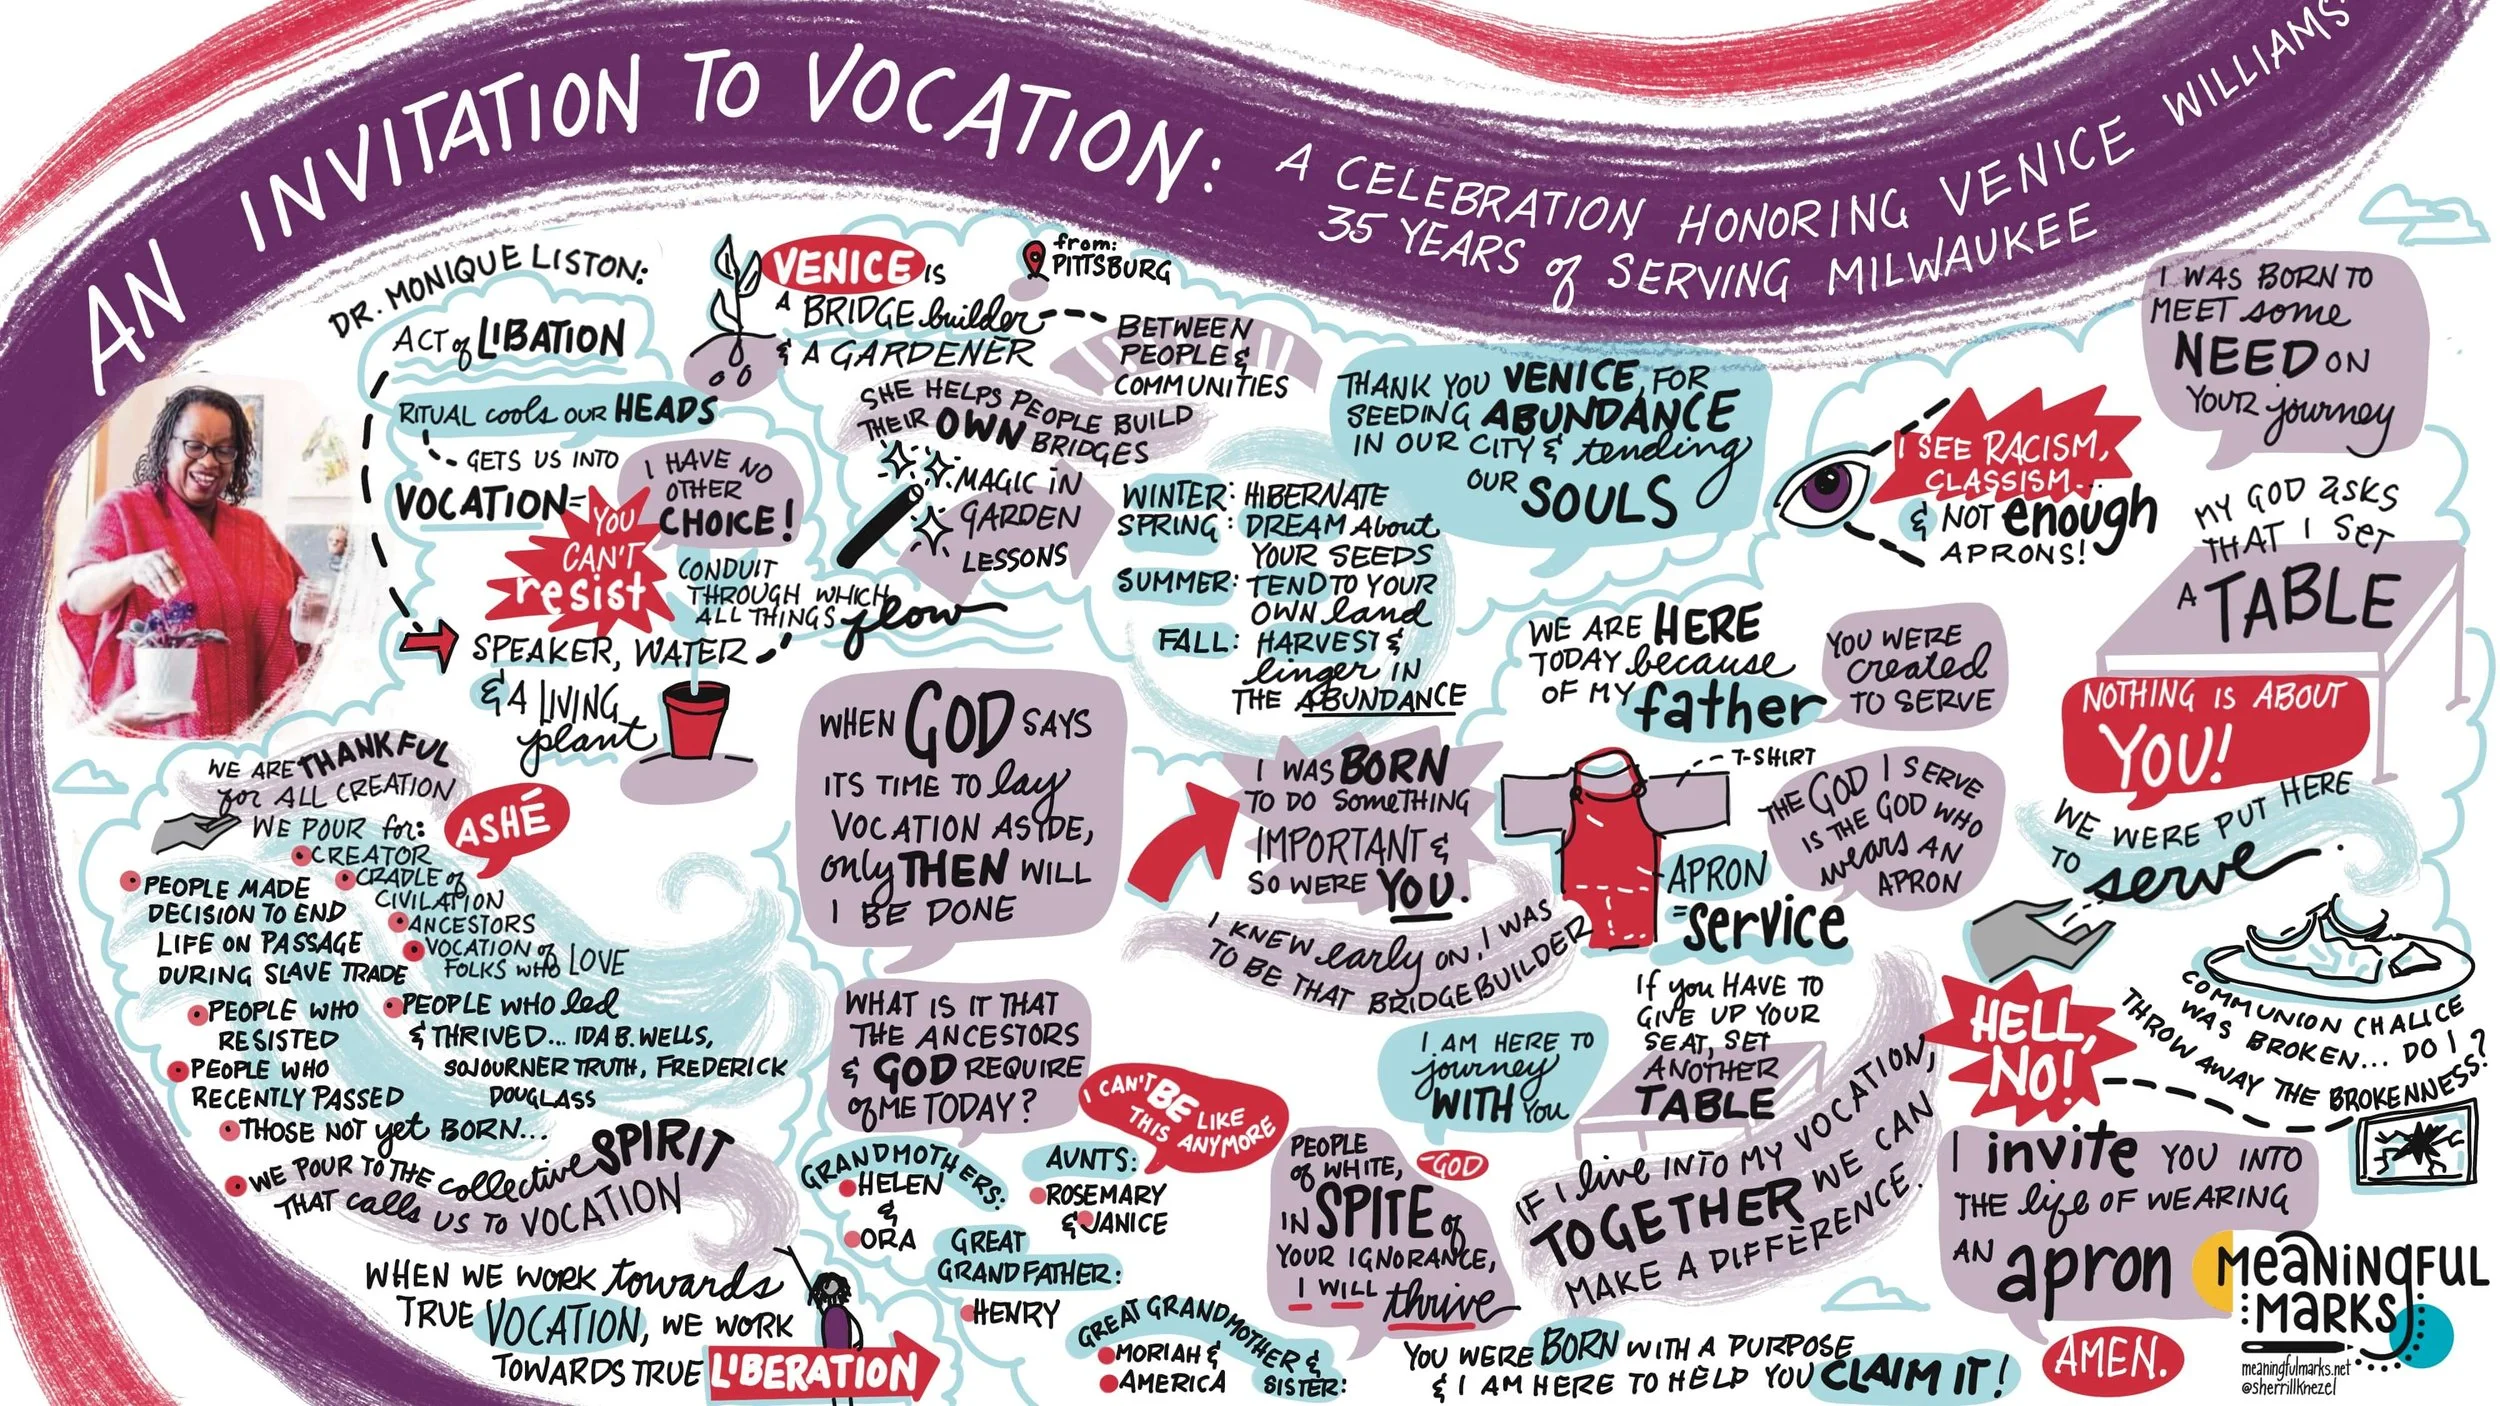 AN INVITATION TO VOCATION:
A CELEBRATION HONORING VENICE WILLIAMS'
35 YEARS of SERVING MILWAUKEE
DR. MONIQUE LISTON:
ACT of LIBATION
RITUAL cools OUR HEADS
GETS US INTO
VOCATION=
YOU
CAN'T
resist
I HAVE NO
OTHER
CHOICE!
CONDUIT
THROUGH WHICH
ALL THINGS flow
SPEAKER, WATER
& A LIVING
plant
VENICE IS
A BRIDGE builder
& A GARDENER
from:
PITTSBURG
BETWEEN
PEOPLE &
COMMUNITIES
SHE HELPS PEOPLE BUILD
THEIR OWN BRIDGES
MAGIC IN
GARDEN
LESSONS
WINTER: HIBERNATE
SPRING: DREAM About
YOUR SEEDS
SUMMER: TEND TO YOUR
OWN land
FALL: HARVEST &
linger IN
THE ABUNDANCE
THANK YOU VENICE, FOR
SEEDING ABUNDANCE
IN OUR CITY & tending
OUR SOULS
I SEE RACISM,
CLASSISM...
& NOT enough
APRONS!
I WAS BORN TO
MEET some
NEED ON
YOUR journey
MY GOD asks
THAT I SET
A TABLE
NOTHING IS ABOUT
YOU!
WE WERE PUT HERE
TO serve.
WE ARE HERE
TODAY because
OF MY father
YOU WERE
created
TO SERVE
T-SHIRT
THE GOD I SERVE
IS THE GOD WHO
wears AN
APRON
APRON
=service
WE ARE THANKFUL
for ALL CREATION
WE POUR for:
ASHÉ
CREATOR
CRADLE of
CIVILATION
ANCESTORS
VOCATION of
FOLKS WHO LOVE
PEOPLE MADE
DECISION TO END
LIFE ON PASSAGE
DURING SLAVE TRADE
PEOPLE WHO
RESISTED
PEOPLE WHO led
& THRIVED... IDA B. WELLS,
SOJOURNER TRUTH, FREDERICK
DOUGLASS
PEOPLE WHO
RECENTLY PASSED
THOSE NOT yet BORN...
WE POUR TO THE collective SPIRIT
THAT calls US TO VOCATION
WHEN WE WORK towards
TRUE VOCATION, WE WORK
TOWARDS TRUE LIBERATION
WHEN GOD SAYS
ITS TIME TO lay
VOCATION ASIDE,
only THEN WILL
I BE DONE
WHAT IS IT THAT
THE ANCESTORS
& GOD REQUIRE
of ME TODAY?
I CAN'T BE LIKE
THIS ANYMORE
GRANDMOTHERS:
HELEN
&
ORA
AUNTS:
ROSEMARY
& JANICE
GREAT
GRANDFATHER:
HENRY
GREAT GRANDMOTHER &
SISTER:
MORIAH &
AMERICA
I WAS BORN
TO DO SOMETHING
IMPORTANT &
SO WERE YOU.
I KNEW early ON, I WAS
TO BE THAT BRIDGEBUILDER
I AM HERE TO
journey
WITH YOU
-GOD
IF YOU HAVE TO
GIVE UP YOUR
SEAT, SET
ANOTHER
TABLE
PEOPLE
of WHITE,
IN SPITE of
YOUR IGNORANCE,
I WILL thrive
IF I live INTO MY VOCATION,
TOGETHER WE CAN
MAKE A DIFFERENCE.
YOU WERE BORN WITH A PURPOSE
& I AM HERE TO HELP YOU CLAIM IT!
HELL,
NO!
COMMUNION CHALICE
WAS BROKEN... DO I
THROW AWAY THE BROKENNESS?
I invite YOU INTO
THE life OF WEARING
AN apron
AMEN.
MeaNINgFUL
MaRKS
meaningfulmarks.net
@sherrillknezel